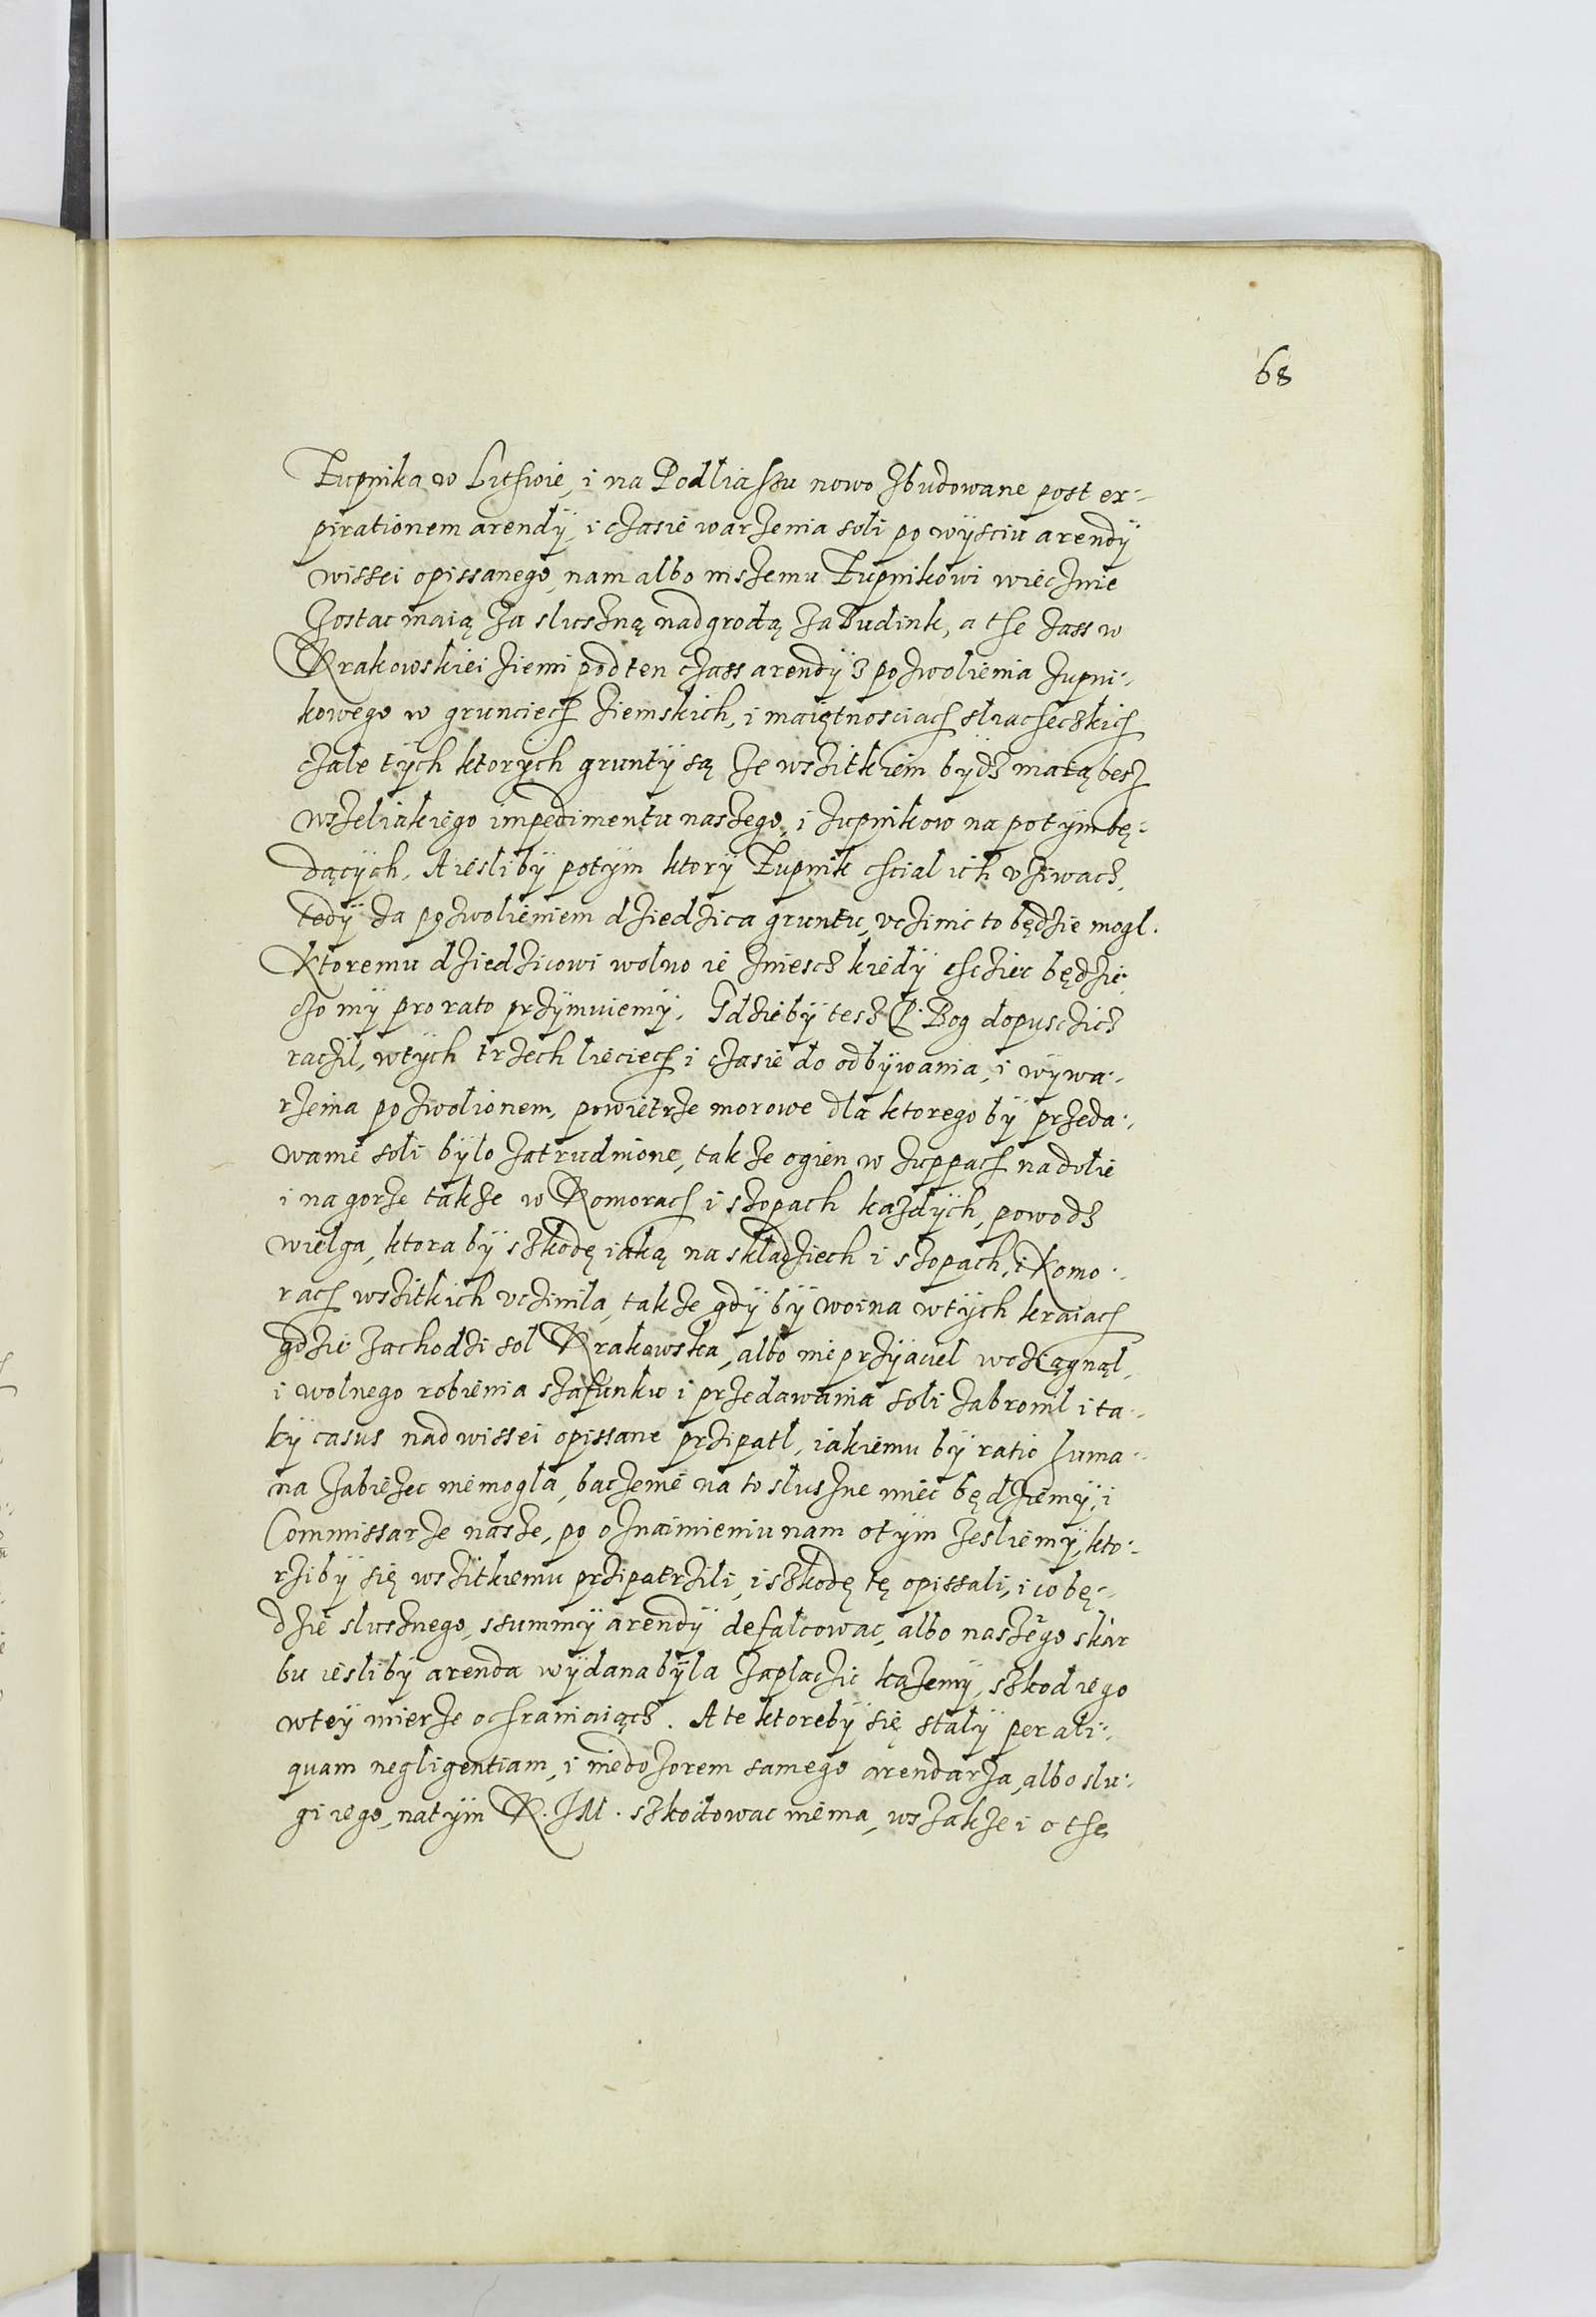 68
Zupnika w Lithwie, i na Podliaszu nowo zbudowane post ex-
pirationem arendÿ, i czasie warzenia soli po wÿsciu arendÿ
wissei opissanego, nam albo inszemu Zupnikowi wiecznie
zostac maią za sluszną nadgrodą za Budink, a the zass w
Krakowskiei ziemi podten czass arendÿ z pozwolienia zupni-
kowego w grunciech ziemskich, i maiętnosciach sliacheczkich
czale tÿch ktorÿch gruntÿ są ze wszitkiem bÿdz maią besz
wszeliakiego impedimentu naszego, i zupnikow na potÿm bę-
dącÿch. A iesli bÿ potÿm ktorÿ Zupnik chcial ich vziwacz,
tedÿ za pozwolieniem dziedzica gruntu, vczinic to będzie mogl.
Ktoremu dziedzicowi wolno ie zniescz kiedÿ chcziec będzie
czo mÿ pro rato przÿmuiemÿ. Gdzie bÿ tesz P. Bog dopuscicz
raczil, wtÿch trzech lieciech i czasie do odbÿwania, i wÿwa-
rzenia pozwolionem, powietrze morowe dla ktorego bÿ przeda-
wanie soli bÿlo zatrudnione, takze ogien w zuppach na dolie
i na gorze takze w Komorach i szopach kazdÿch, powodz
wielga, ktora bÿ szkodę iaką na skladziech i szopach, i Komo-
rach wszitkich vczinila, takze gdÿ bÿ woina wtÿch kraiach
gdzie zachodzi sol Krakowska, albo nieprzÿiaciel wcziągnąl,
i wolnego robienia szafunku i przedawania soli zabronil i ta-
kÿ casus nad wissei opissane przipatl, iakiemu bÿ ratio huma-
na zabiezec niemogla, baczenie na to sluszne miec będziemÿ, i
Commissarze nasze, po oznaimieniu nam otÿm zesliemÿ, kto-
rzi bÿ się wszitkiemu przipatrzili, i szkodę tę opissali, i co bę-
dzie slusznego, ssummÿ arendÿ defalcowac, albo naszego skar
bu iesli bÿ arenda wÿdana bÿla zaplaczic kazemÿ, szkod iego
wteÿ mierze ochraniaiącz. A te ktore bÿ się stalÿ per ali-
quam negligentiam, i niedozorem samego arendarza, albo slu-
gi iego, natÿm K. JM. szkodowac niema, wszakze i o the